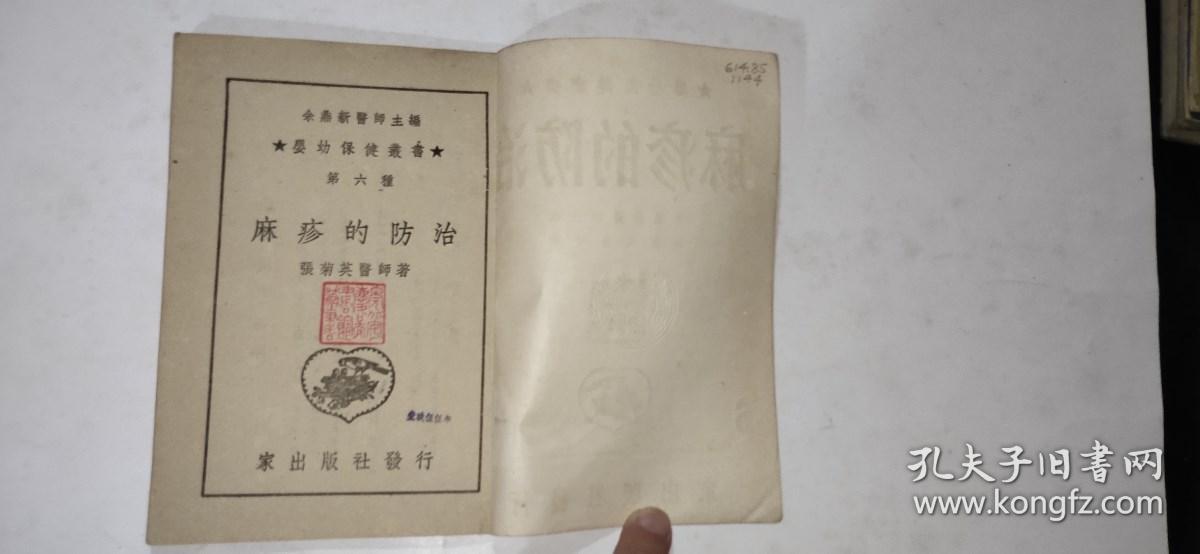 余鼎新醫師主編
★嬰幼保健叢書★
第六種
麻疹的防治
張菊英醫師著
家出版社發行
614.85
1144
麻疹的防治
孔夫子旧书网
www.kongfz.com